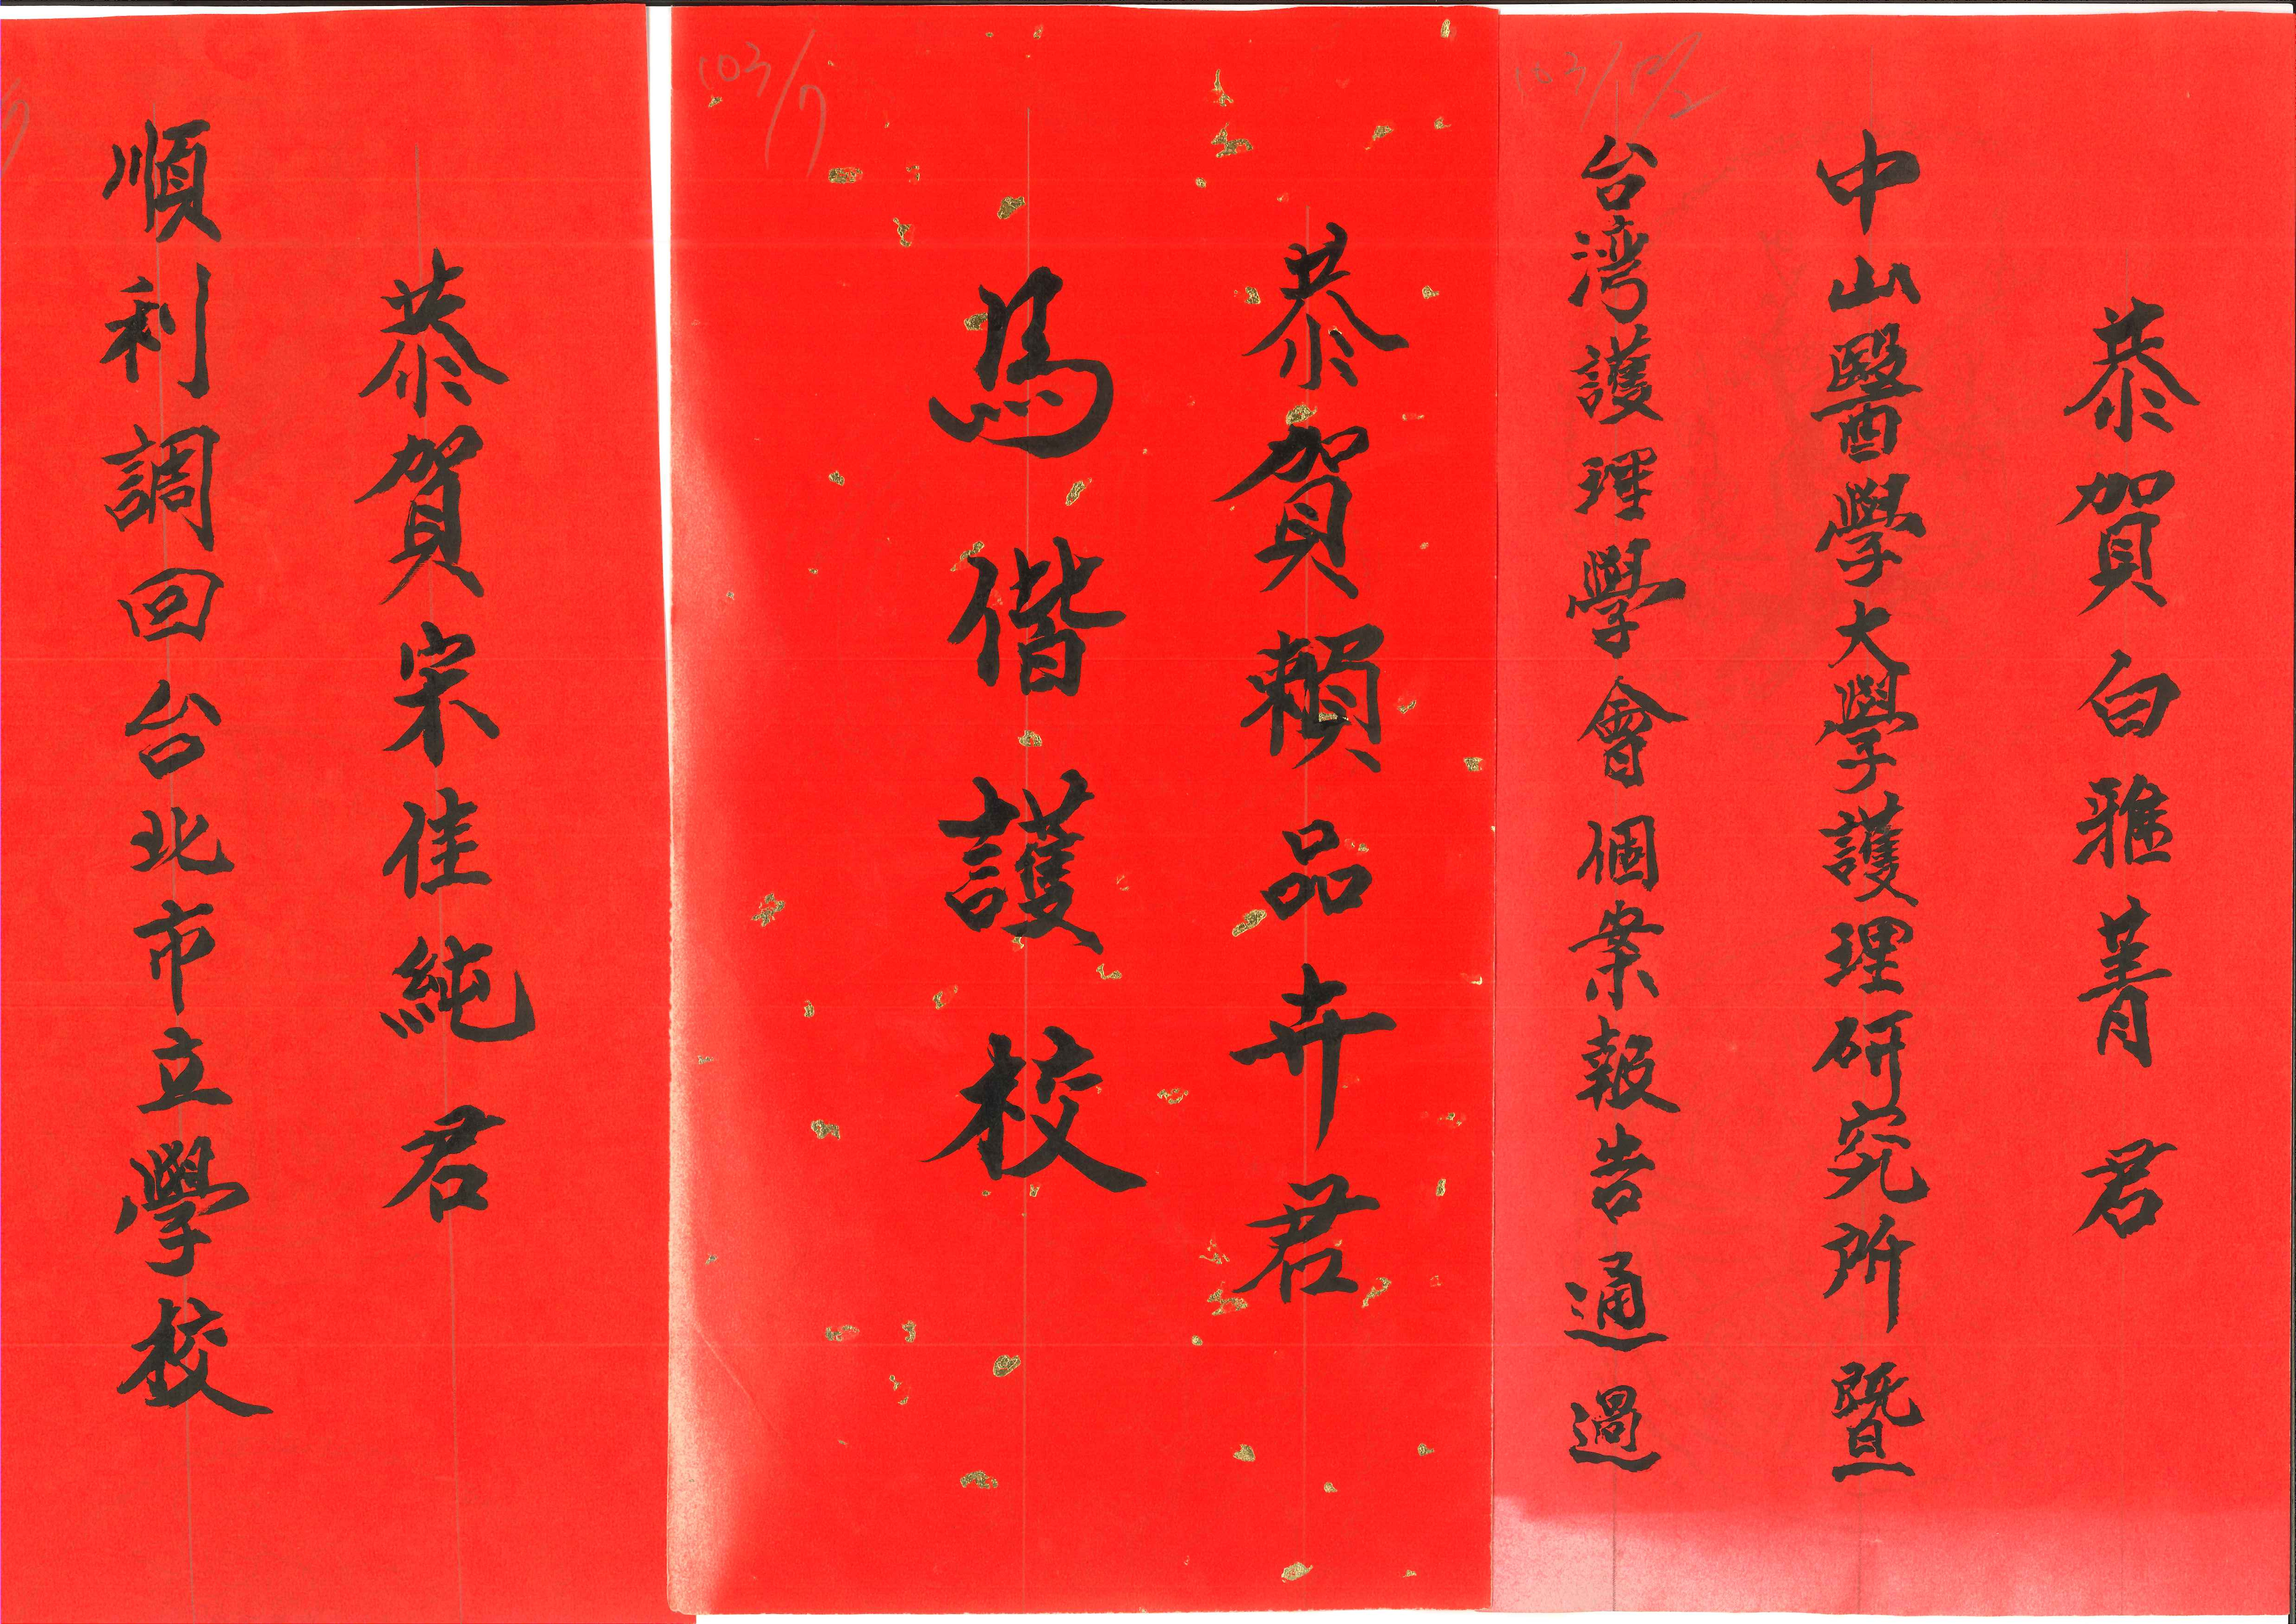 恭賀白雅菁君
中山醫學大學護理研究所暨
台湾護理學會個案報告通過
103/12/2
恭賀賴品卉君
馬偕護校
103/7
恭賀宋佳純君
順利調回台北市立學校